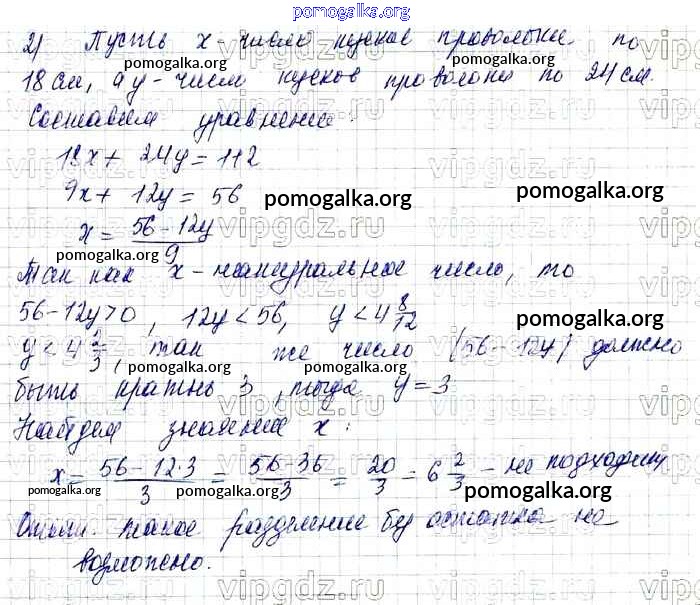 pomogalka.org
2) Пусть x число кусков проволоки по
18 см, а y - число кусков проволоки по 24 см.
Составим уравнение:
18x + 24y = 112
9x + 12y = 56
x = (56 - 12y)/9
Так как x - натуральное число, то
56 - 12y > 0, 12y < 56, y < 4 8/12
y < 4 2/3, так же число (56 - 12y) должно
быть кратно 3, тогда y = 3
Найдем значение x:
x = (56 - 12·3)/3 = (56 - 36)/3 = 20/3 = 6 2/3 - не подходит
Ответ: такое разделение без остатка не
возможено.
pomogalka.org
pomogalka.org
pomogalka.org
pomogalka.org
pomogalka.org
pomogalka.org
pomogalka.org
pomogalka.org
pomogalka.org
vipgdz.ru